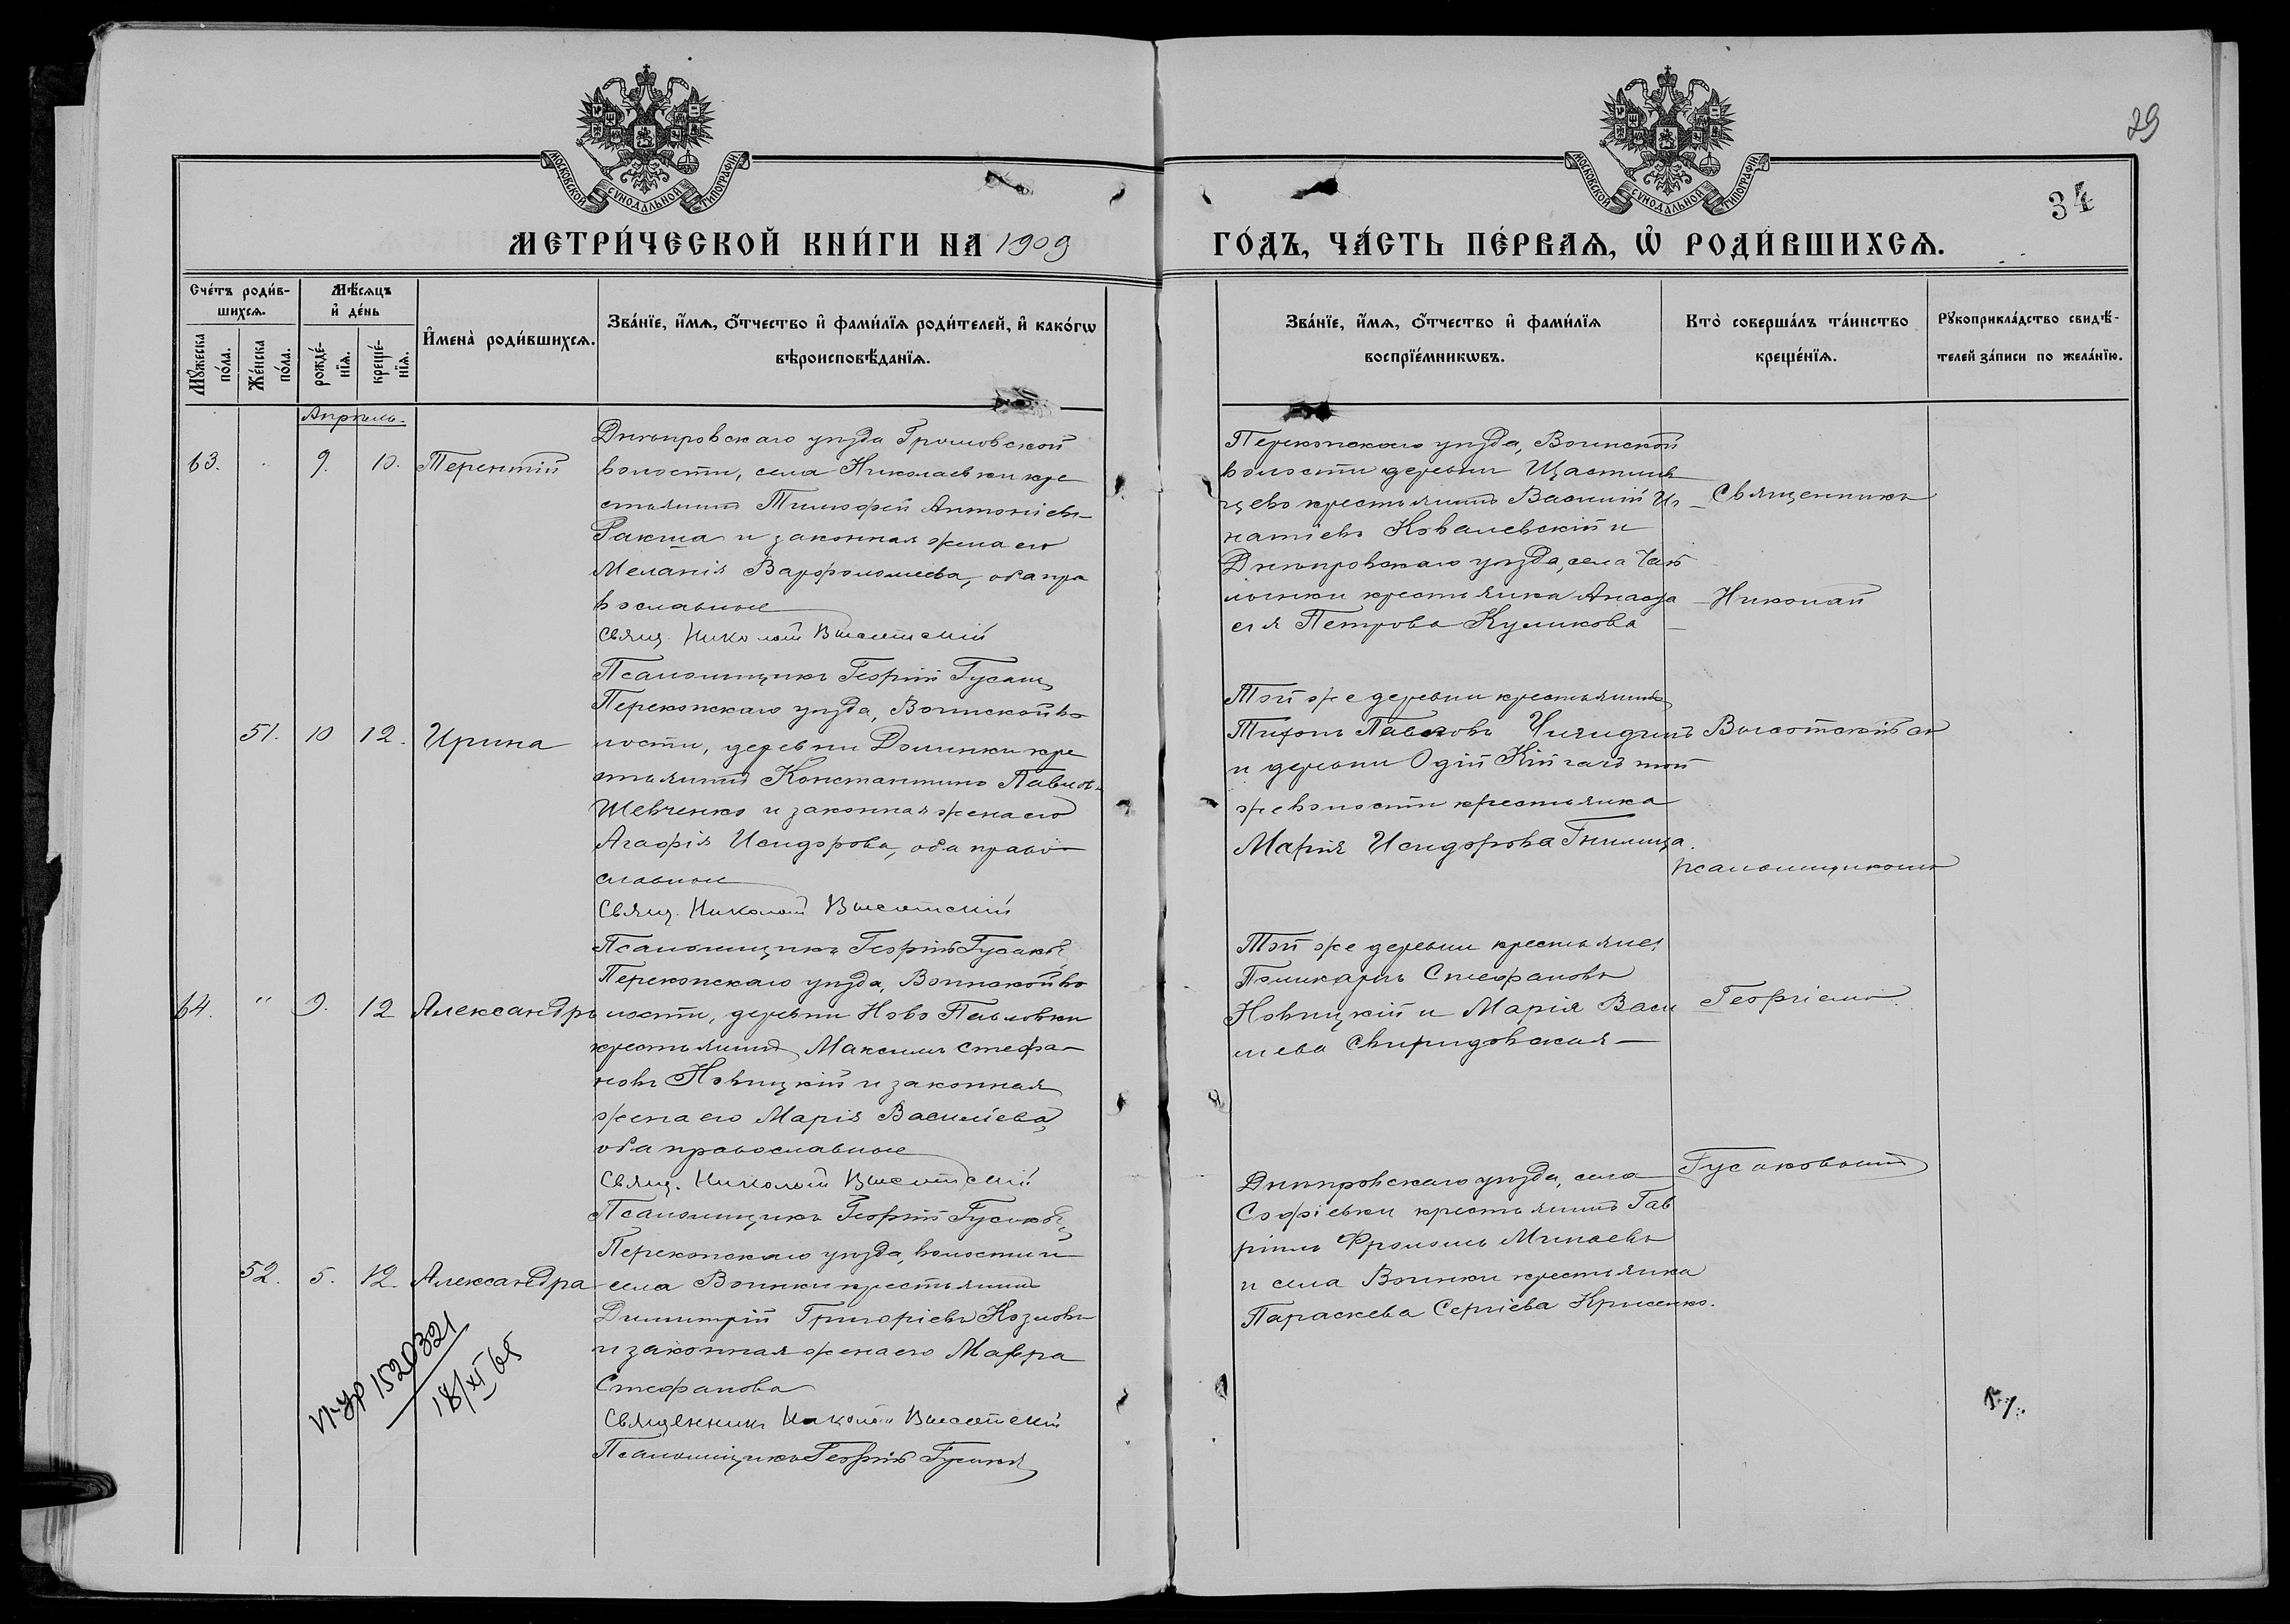 29
34
МОСКОВСКОЙ СѴНОДАЛЬНОЙ ТИПОГРАФІИ
МОСКОВСКОЙ СѴНОДАЛЬНОЙ ТИПОГРАФІИ
МЕТРИ́ЧЕСКОЙ КНИ́ГИ НА 1909
ГО́ДЪ, ЧА́СТЬ ПЕ́РВАѦ, Ѡ҆ РОДИ́ВШИХСѦ.
Сче́тъ роди́в-
шихсѧ.
Мꙋ́жеска по́ла.
Же́нска по́ла.
Мѣ́сѧцъ
и҆ де́нь
рожде́-нїѧ.
креще́-нїѧ.
И҆мена̀ роди́вшихсѧ.
Зва́нїе, и҆́мѧ, ѻ҆́тчество и҆ фами́лїѧ роди́телей, и҆ како́гѡ
вѣроисповѣ́данїѧ.
Зва́нїе, и҆́мѧ, ѻ҆́тчество и҆ фами́лїѧ
воспрїе́мникѡвъ.
Кто̀ соверша́лъ та́инство
креще́нїѧ.
Рꙋкоприкла́дство свидѣ́-
телей за́писи по жела́нїю.
Апрѣль.
63. 9. 10. Терентій
Днѣпровскаго уѣзда Громовской
волости, села Николаевки кре
стьянинъ Тимофей Антоніевъ
Ракша и законная жена его
Меланія Варфоломеева, оба пра
вославные
Свящ. Николай Высотскій
Псаломщикъ Георгій Гусаковъ
Перекопскаго уѣзда, Воинской
волости деревни Щастлив
цево крестьянинъ Василій Иг
натіевъ Ковалевскій и
Днѣпровскаго уѣзда, села Чап
линки крестьянка Анаста
сія Петрова Куликова
Священникъ
Николай
51. 10 12. Ирина
Перекопскаго уѣзда, Воинской во
лости, деревни Долинки кре
стьянинъ Константинъ Павловъ
Шевченко и законная жена его
Агафія Исидорова, оба право
славные
Свящ. Николай Высотскій
Псаломщикъ Георгій Гусаковъ
Той же деревни крестьянинъ
Тихонъ Павловъ
и деревни
же волости крестьянка
Марія Исидорова Гнилица.
Высотскій съ
псаломщикомъ
64. " 9. 12 Александръ
Перекопскаго уѣзда, Воинской во
лости, деревни Ново Павловки
крестьянинъ Максимъ Стефа
новъ Новицкій и законная
жена его Марія Василіева,
оба православные
Свящ. Николай Высотскій
Псаломщикъ Георгій Гусаковъ
Той же деревни крестьяне
Поликарпъ Стефановъ
Новицкій и Марія Васи
лиева Свиридовская
Георгіемъ
Гусаковымъ
52. 5. 12. Александра
Перекопскаго уѣзда, волости и
села Воинки крестьянинъ
Димитрій Григоріевъ Козловъ
и законная жена его Мавра
Стефанова
Священникъ Николай Высотскій
Псаломщикъ Георгій Гусаковъ
Днѣпровскаго уѣзда, села
Софіевки крестьянинъ Гав
ріилъ Минаевъ
и села Воинки крестьянка
Параскева Сергіева
1520321
18/XI 65